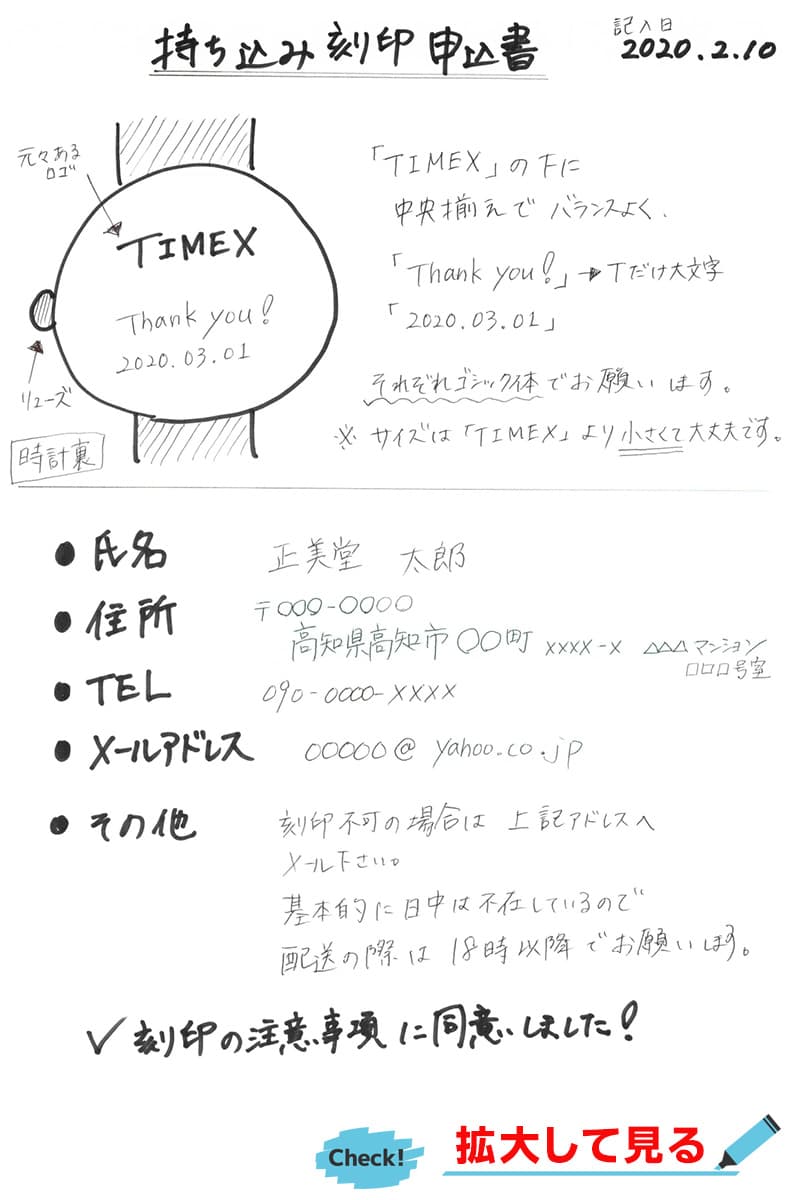 持ち込み刻印申込書
記入日
2020.2.10
元々ある
ロゴ
TIMEX
Thank you!
2020.03.01
リューズ
時計裏
「TIMEX」の下に
中央揃えでバランスよく、
「Thank you!」→Tだけ大文字
「2020.03.01」
それぞれゴシック体でお願いします。
※サイズは「TIMEX」より小さくて大丈夫です。
● 氏名 正美堂 太郎
● 住所 〒000-0000
高知県高知市〇〇町 xxxx-x △△△マンション
□□□号室
● TEL 090-0000-xxxx
● メールアドレス 00000@yahoo.co.jp
● その他 刻印不可の場合は上記アドレスへ
メール下さい。
基本的に日中は不在しているので
配送の際は18時以降でお願いします。
✓刻印の注意事項に同意しました!
Check!
拡大して見る